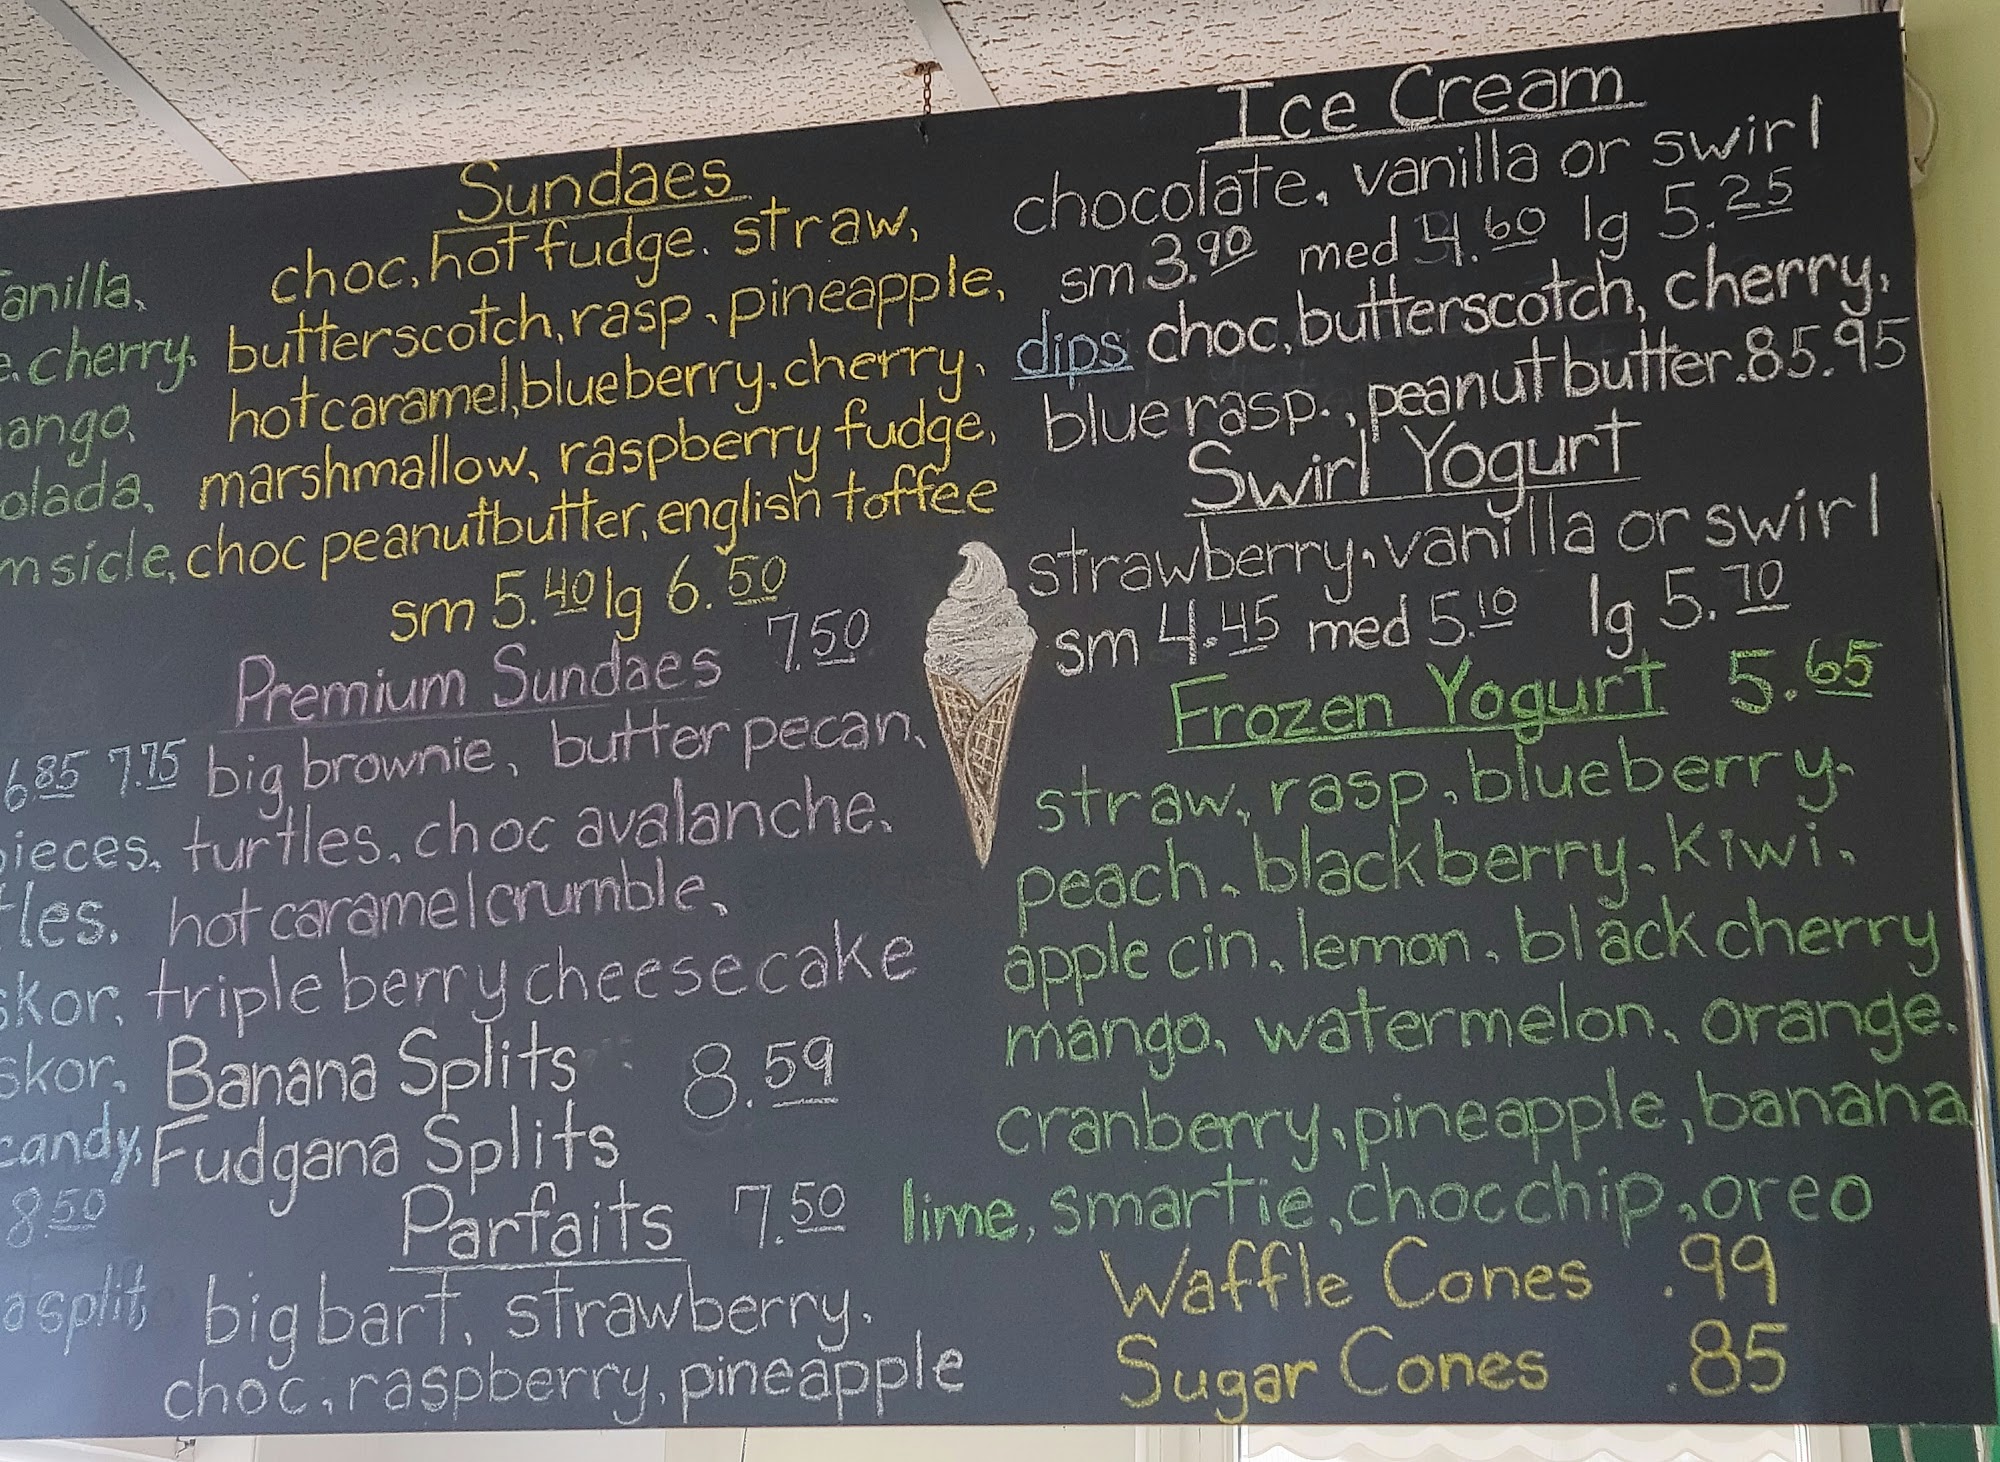 Sundaes
choc, hot fudge. straw,
butterscotch, rasp, pineapple,
hot caramel, blueberry, cherry,
marshmallow, raspberry fudge,
choc peanutbutter, english toffee
sm 5.40 lg 6.50
Premium Sundaes 7.50
big brownie, butter pecan,
turtles, choc avalanche,
hot caramel crumble,
triple berry cheesecake
Banana Splits 8.59
Fudgana Splits
Parfaits 7.50
big bart, strawberry,
choc, raspberry, pineapple
Ice Cream
chocolate, vanilla or swirl
sm 3.90 med 4.60 lg 5.25
dips choc, butterscotch, cherry,
blue rasp., peanut butter .85 .95
Swirl Yogurt
strawberry, vanilla or swirl
sm 4.45 med 5.10 lg 5.70
Frozen Yogurt 5.65
straw, rasp, blueberry,
peach, blackberry, kiwi,
apple cin, lemon, black cherry
mango, watermelon, orange,
cranberry, pineapple, banana
lime, smartie, choc chip, oreo
Waffle Cones .99
Sugar Cones .85
anilla,
cherry,
ango,
olada,
msicle,
6.85 7.75
pieces,
les,
skor,
skor,
candy,
8.50
split,